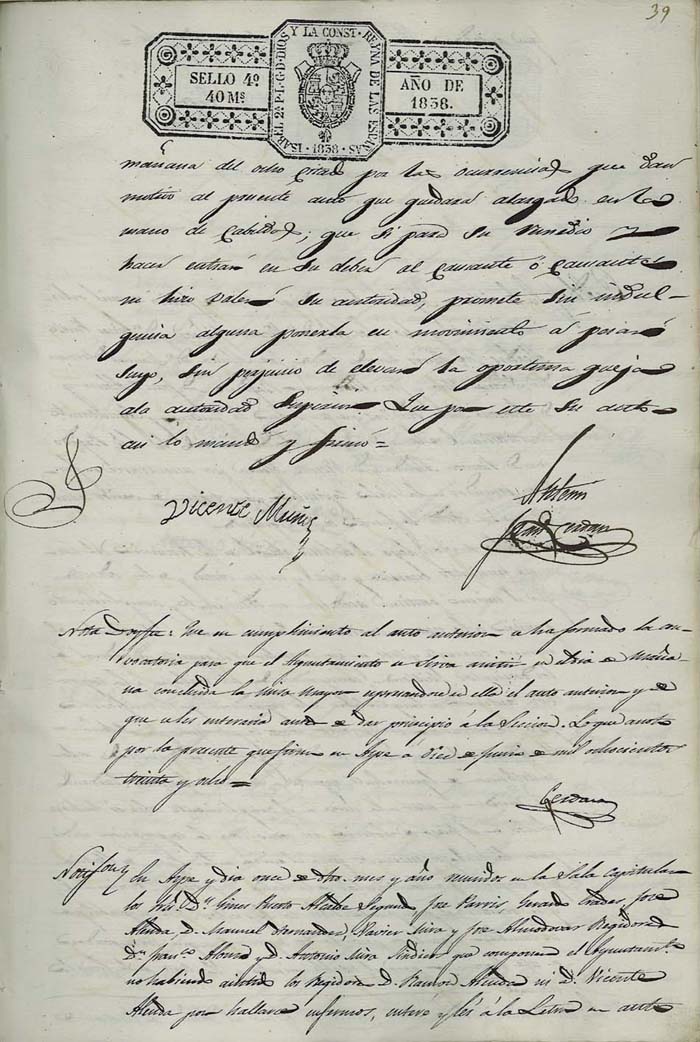 39
ISABEL 2ª P.L.G.D.DIOS Y LA CONST. REYNA DE LAS ESPAÑAS
· 1838 ·
SELLO 4º
40 Mˢ
AÑO DE
1838.
mañana del ocho por las ocurrencias que dan
motivo al presente auto que quedará alargado en la
mano de Cabildos; que si para su remedio y
hacer entrar en su deber al causante ó causantes
ni hizo valer su autoridad, promete sin indul-
gencia alguna ponerla en movimiento á pesar
suyo, sin perjuicio de elevar la oportuna queja
ala autoridad Superior. Que por este su auto
asi lo mandó y firmó=
Vicente Muñoz
Antemi
Cerdan
Nota Doy fe: Que en cumplimiento al auto anterior se ha formado la con
vocatoria para que el Ayuntamiento se sirva asistir el dia de maña
na concluida la misa mayor el auto anterior y de
que se les enteraria antes de dar principio á la Sesion. Lo que anoto
por la presente que firmo en Aspe á diez de Junio de mil ochocientos
treinta y ocho=
Cerdan
En Aspe y dia once de dho. mes y año reunidos en la Sala capitular
los Sres. D. Gines Alcalde Segundo Jose Pavia, Gerardo Jose
Alenda, D. Manuel Hernandez, Xavier Mira y Jose Almodovar Regidores
Dn. Franco. Alonso y D. Antonio Mira Sindicos que componen el Ayuntamto.
no habiendo asistido los Regidores D. Ramon Alenda ni D. Vicente
Alenda por hallarse enfermos, entere y leí á la Letra el auto